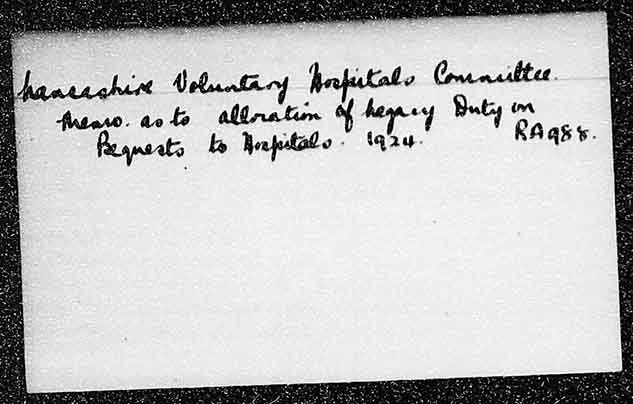 Lancashire Voluntary Hospitals Committee.
Memo. as to allocation of Legacy Duty on
Bequests to Hospitals. 1924. RA988.